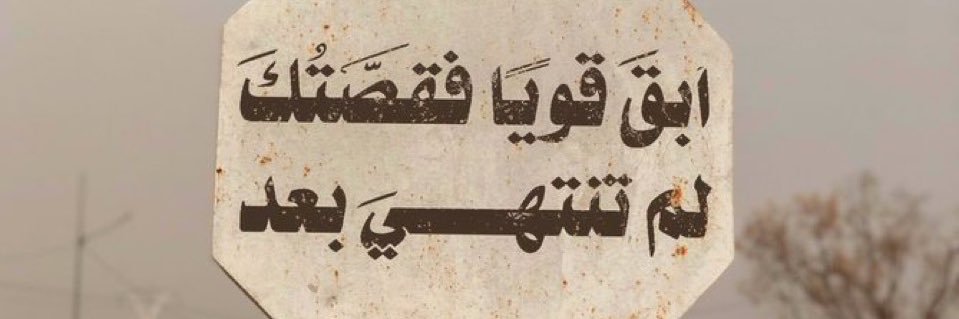 ابقَ قويًا فقصَّتُكَ
لم تنتهيَ بعد